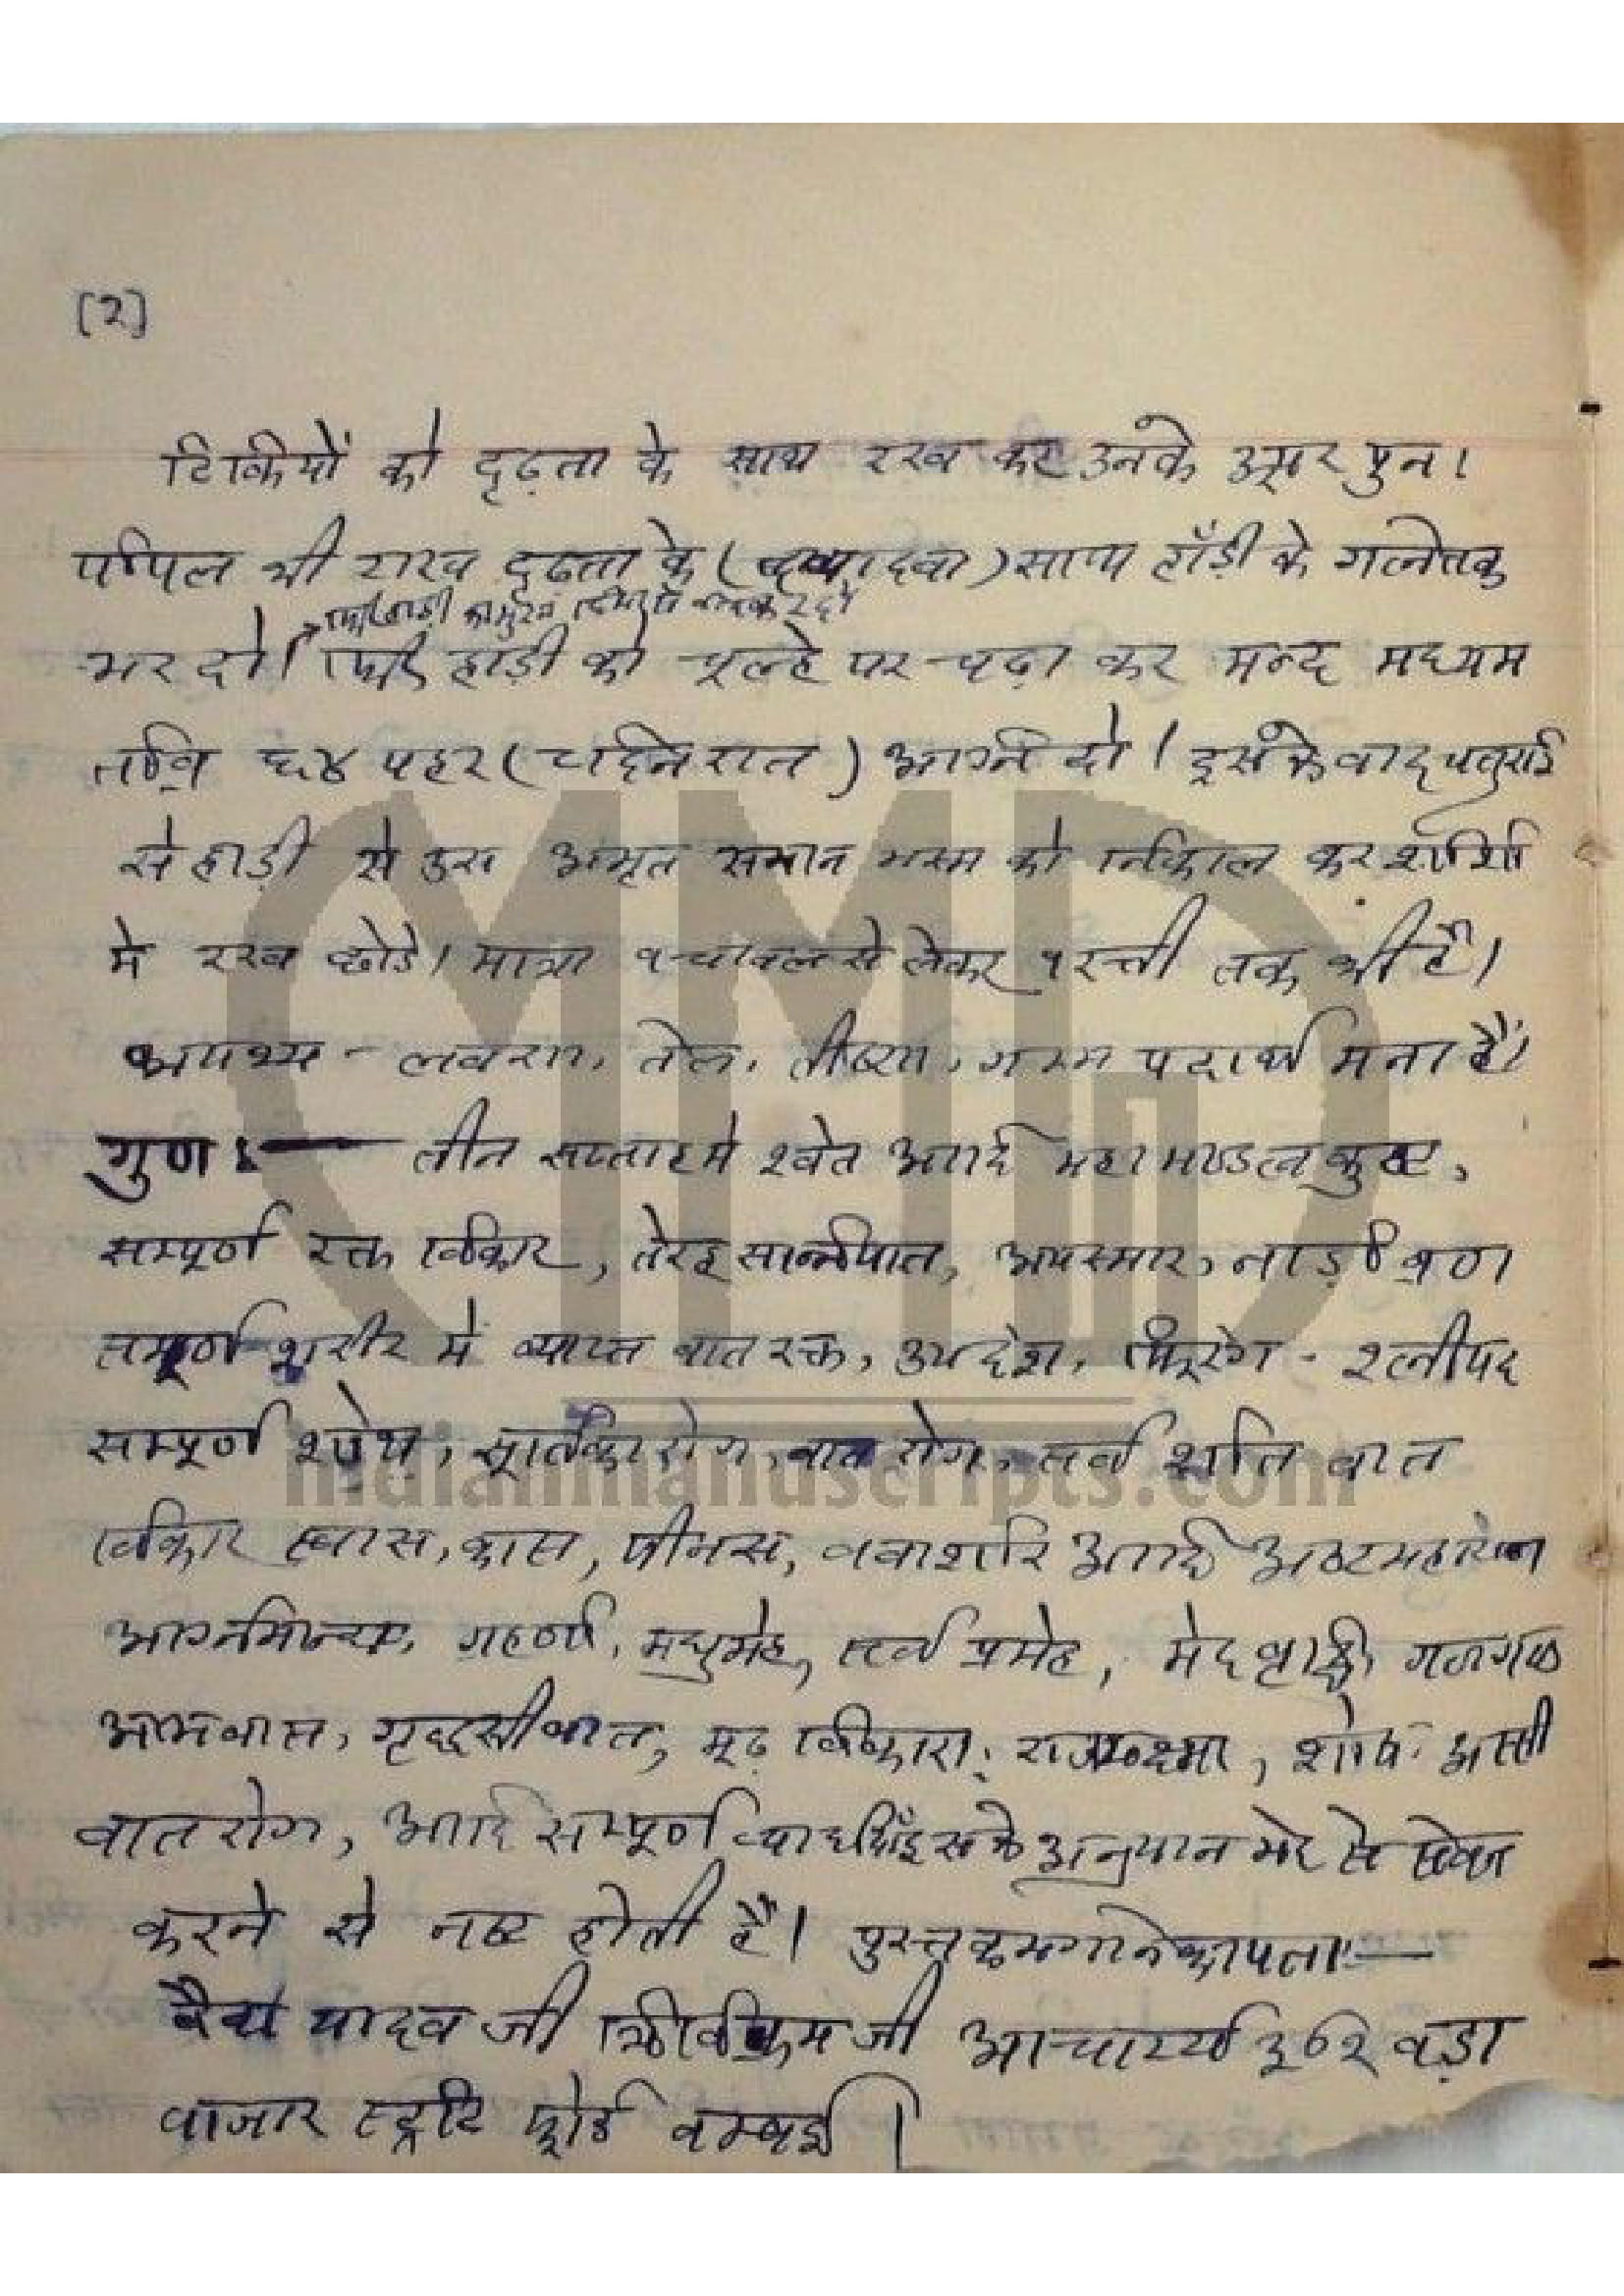 [2]
टिकियों को दृढ़ता के साथ रख कर उनके ऊपर पुनः
पीपल की राख दृढ़ता के (दबा दबा) साथ हाँड़ी के गले तक
फिर हाड़ी का मुख बन्द कर दो
भर दो। फिर हाड़ी को चूल्हे पर चढ़ा कर मन्द मध्यम
तीव्र ६४ पहर (८ दिन रात) अग्नि दो। इसके बाद चतुराई
से हाड़ी से उस अमृत समान भस्म को निकाल कर शीशी
मे रख छोडे। मात्रा १ चावल से लेकर १ रत्ती तक की है।
अपथ्य - लवण, तेल, तीक्ष्ण, गरम पदार्थ मना हैं।
गुण :— तीन सप्ताह मे श्वेत आदि महा मण्डल कुष्ट,
सम्पूर्ण रक्त विकार, तेरह सान्निपात, अपस्मार, नाड़ी व्रण
सम्पूर्ण शरीर में व्याप्त वात रक्त, उपदंश, फिरंग - श्लीपद
सम्पूर्ण शोथ, सूतिका रोग, वात रोग, सर्व शीत वात
विकार स्वास, कास, पीनस, ववाशीर आदि अष्ट महारोग
अग्निमान्द्य, ग्रहणी, मधुमेह, सर्व प्रमेह, मेद वृद्धि, गलगण्ड
आमवात, गृद्धसी वात, मूढ़ विकार, राजयक्ष्मा, शोष अस्सी
वात रोग, आदि सम्पूर्ण व्याधियाँ इसके अनुपान से सेवन
करने से नष्ट होती हैं। पुस्तक मगाने का पता :—
वैद्य यादव जी त्रिविक्रम जी आचार्य्य वड़ा
वाजार स्ट्रीट फोर्ट वम्वई।
MMD
indianmanuscripts.com